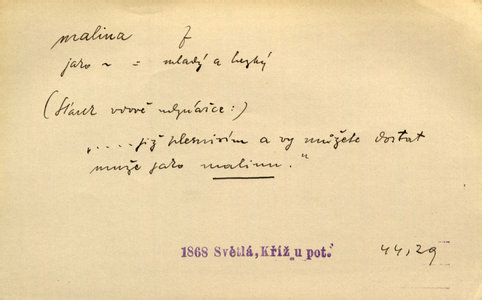 malina f
jako ~ = mladý a hezký
(Stařec vdově mlynářce:)
„.... již plesnivím a vy můžete dostat
muže jako malinu."
1868 Světlá, Kříž u pot. 44, 29